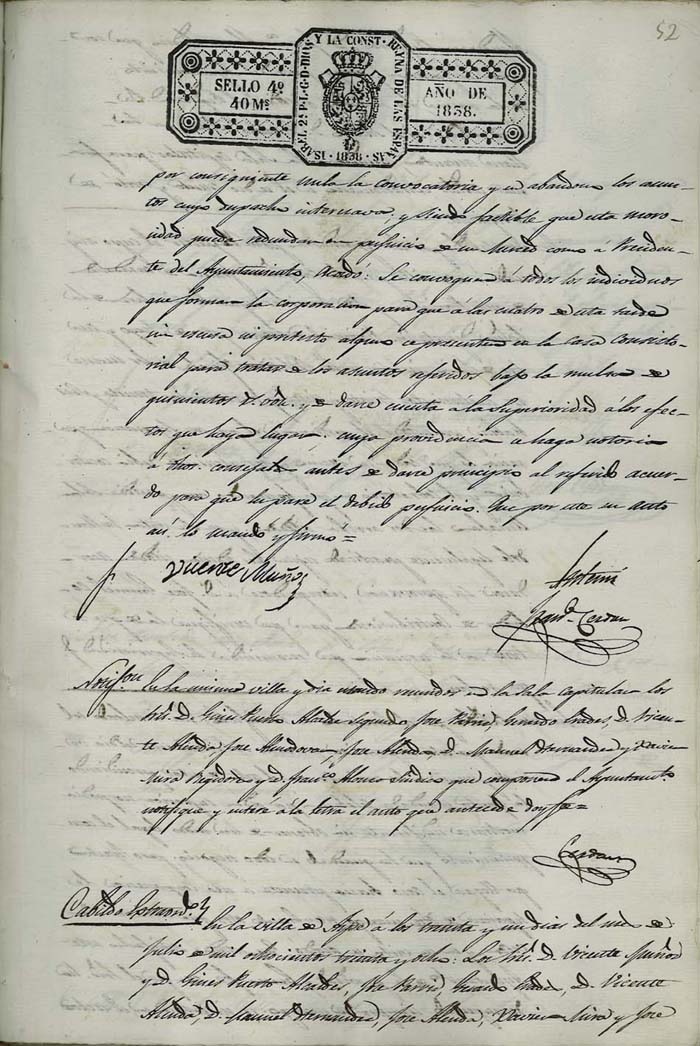 52
SELLO 4º
40 Ms
ISABEL 2ª P.L.G.D.DIOS Y LA CONST. REYNA DE LAS ESPAÑAS
1838
AÑO DE
1838.
por consiguiente nula la convocatoria y en abandono los asun-
tos cuyo despacho interesava, y siendo factible que esta moro-
sidad pueda redundar en perjuicio de su Merced como á Preciden-
te del Ayuntamiento, Acordó: Se convoquen á todos los individuos
que forman la corporacion para que á las cuatro de esta tarde
sin escusa ni pretesto alguno se presenten en la casa Consisto-
rial para tratar de los asuntos referidos bajo la multa de
quinientos y de darse cuenta á la Superioridad á los efec-
tos que haya lugar: cuya providencia se haga notoria
á Señores concejales antes de darse principio al referido acuer-
do para que les pare el debido perjuicio. Que por este su auto
asi lo mando y firmó =
Vicente Muñoz
Antemi
Cerdan
Notifon. En la misma villa y dia estando reunidos en la Sala capitular los
Sres. D. Gines Puerto Alcalde segundo, Jose Berrio, D. Vicen-
te Alenda, Jose Almodovar, Jose Alenda, D. Manuel Hernandez y Xavier
Mira Regidores y D. Franco. Alonso Sindico que componen el Ayuntamto.
notifique y intere á la letra el auto que antecede doy fe =
Cerdan
Cabildo Estraord.o En la villa de Aspe á los treinta y un dias del mes de
Julio de mil ochocientos treinta y ocho: Los Sres. D. Vicente Muñoz
y D. Gines Puerto Alcaldes, Jose Berrio, D. Vicente
Alenda, D. Manuel Hernandez, Jose Alenda, Xavier Mira y Jose